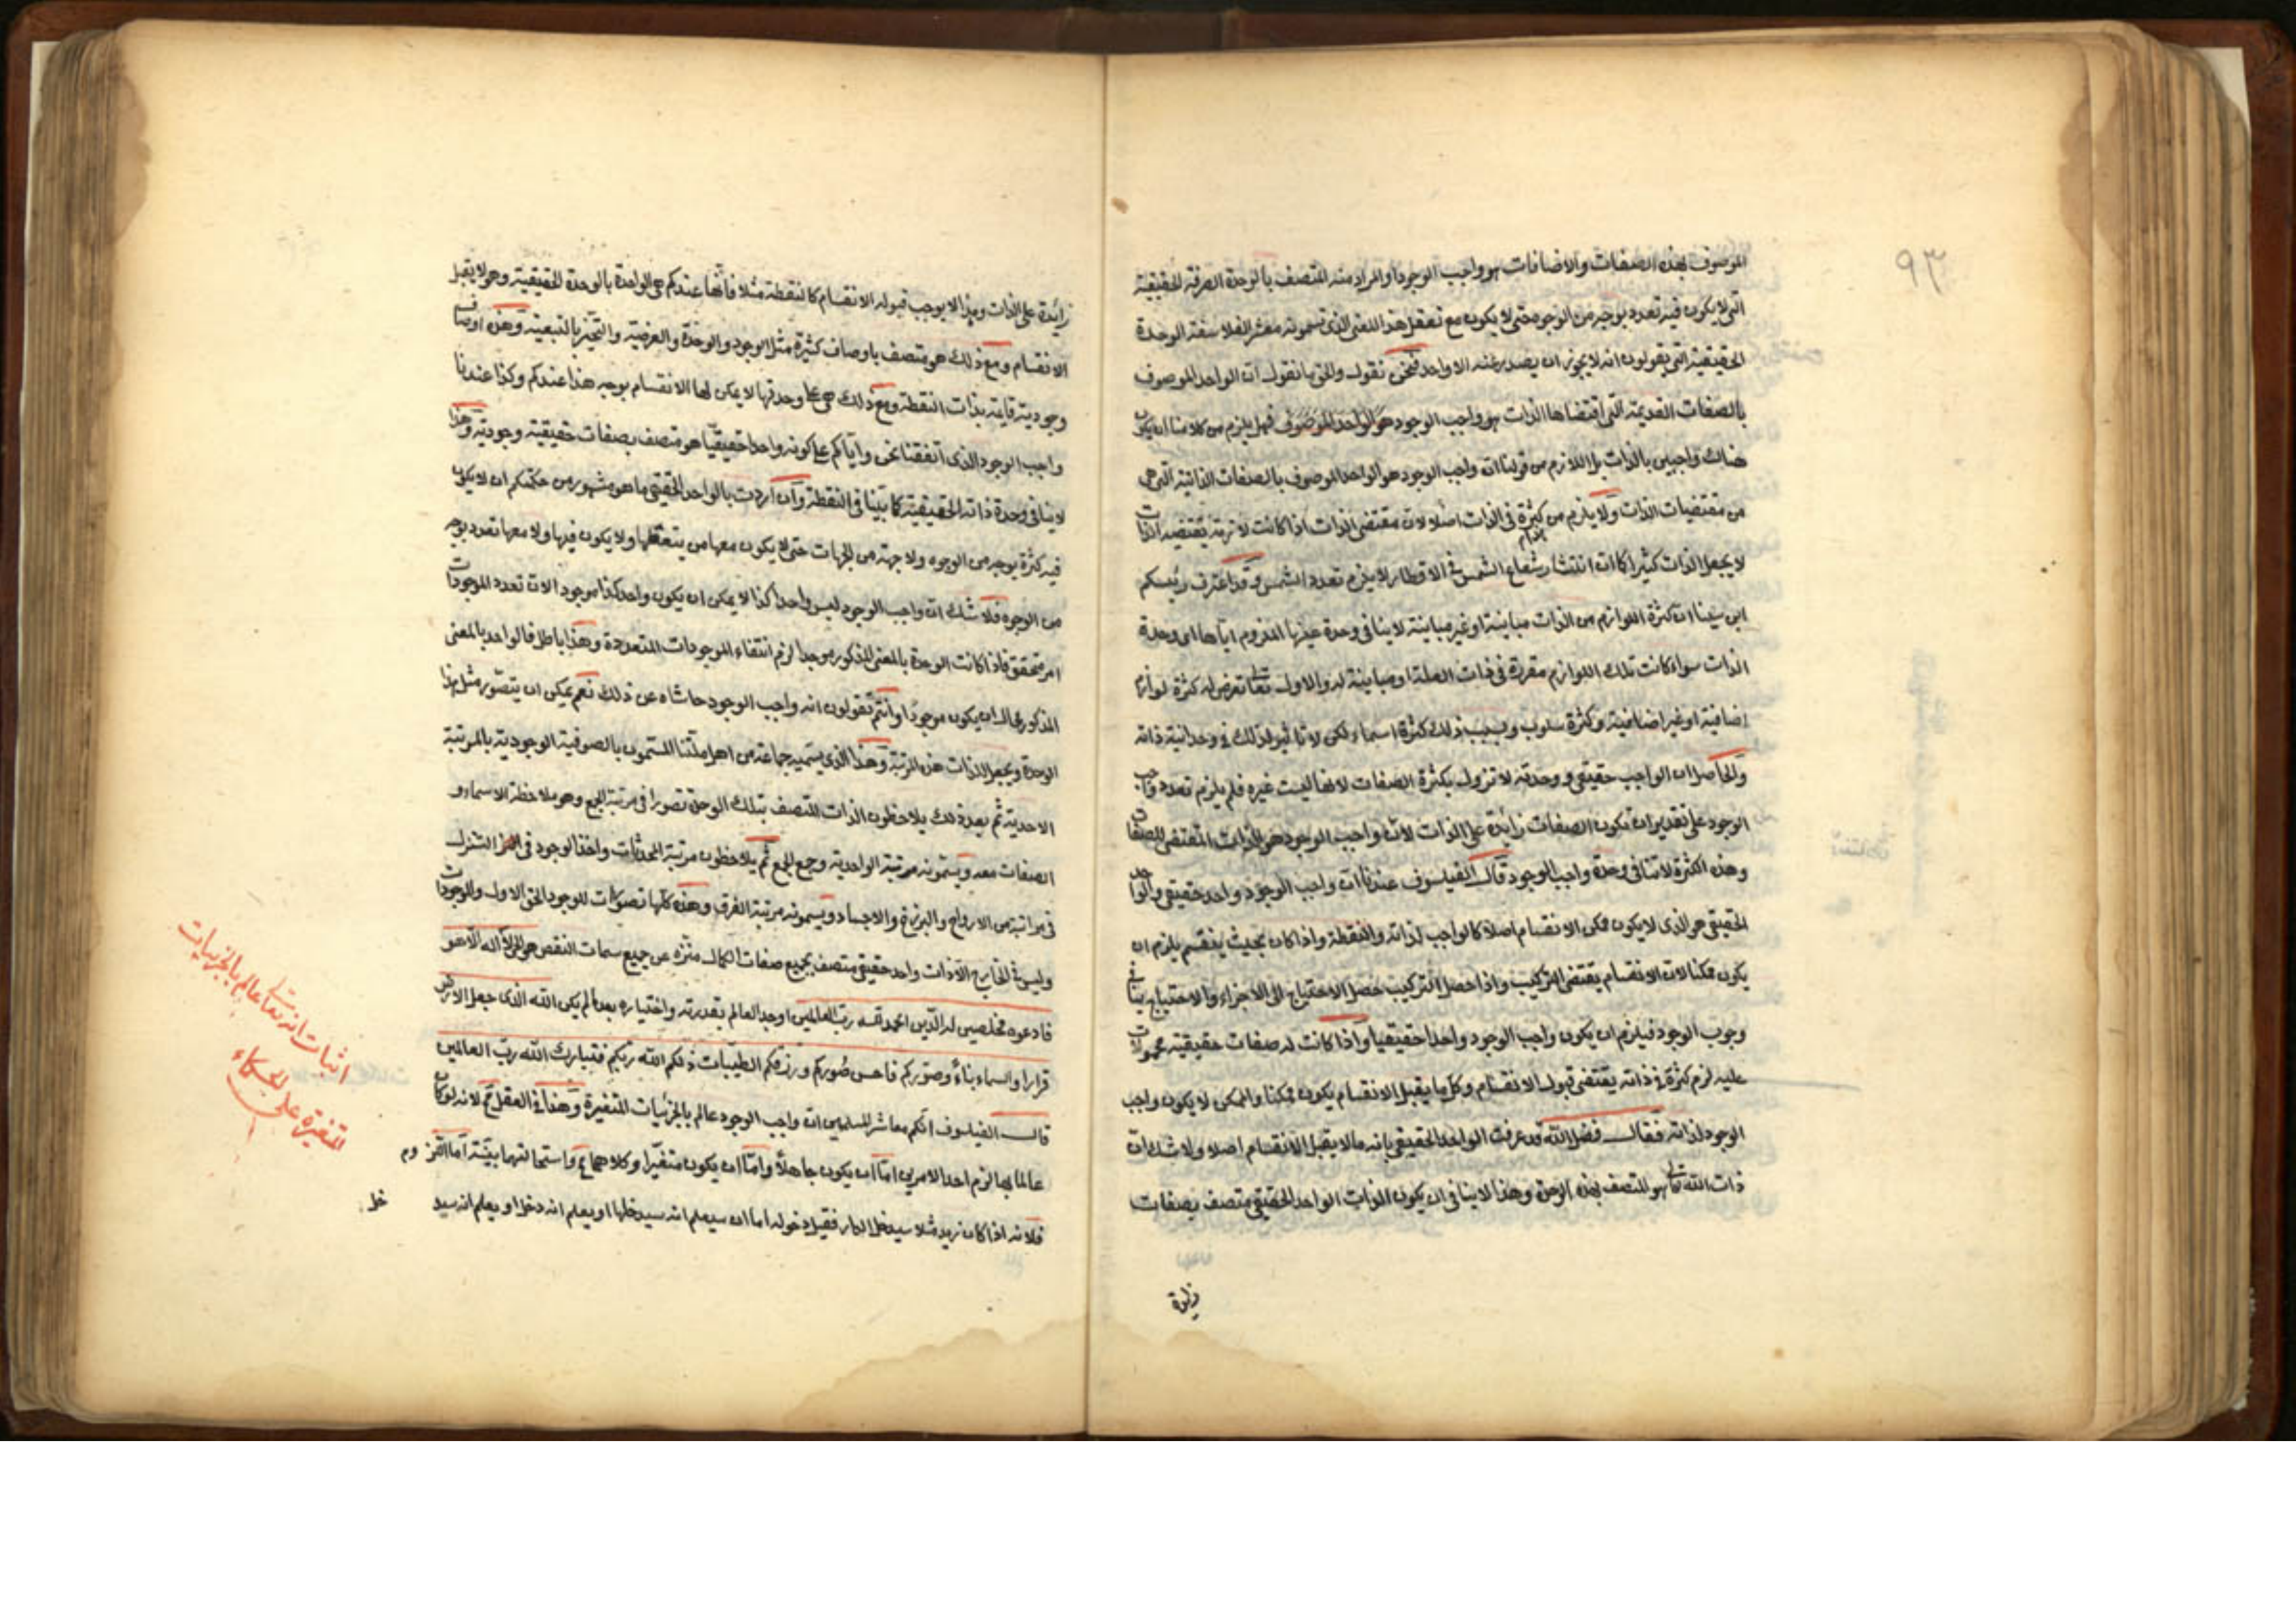 ٩٣
الموصوف بهذه الصفات والاضافات هو واجب الوجود او المراد منه المتصف بالوحدة الصرفة الحقيقية
التى لا يكون فيه تعدد بوجه من الوجوه حتى لا يكون مع تعقل هذا المعنى الذى تسمونه معشر الفلاسفة الوحدة
الحقيقية التى يقولون انه لا يجوز ان يصدر عنه الا واحد فنحن نقول والحق ما نقول ان الواحد الموصوف
بالصفات القديمة التى اقتضاها الذات هو واجب الوجود هو الواحد الموصوف فهل يلزم من كلامنا ان يكون
هناك واجبين بالذات بل اللازم من قولنا ان واجب الوجود هو الواحد الموصوف بالصفات الذاتية التى هى
من مقتضيات الذات ولا يلزم من كثرة فى الذات اصلا لان مقتضى الذات اذا كانت لازمة يقتضيه الذات
لا يجعل الذات كثيرا كما ان انتشار شعاع الشمس فى الاقطار لا يلزم تعدد الشمس وقد اعترف رئيسكم
ابن سينا ان كثرة اللوازم من الذات مباينة او غير مباينة لا ينافى وحدة عينها الملزوم اياها اى وحدة
الذات سواء كانت تلك اللوازم متقررة فى ذات العلة او مباينة له والاول تعالى تعرض له كثرة لوازم
اضافية او غير اضافية وكثرة سلوب وبسبب ذلك كثرة اسماء لكن لا تاثير لذلك فى وحدانية ذاته
والحاصل ان الواجب حقيقى ووحدته لا تزول بكثرة الصفات لانها ليست غيره فلم يلزم تعدد واجب
الوجود على تقدير ان تكون الصفات زايدة على الذات لان واجب الوجود هو الذات المقتضى للصفات
وهذه الكثرة لا تنافى وحدة واجب الوجود قال الفيلسوف عندنا ان واجب الوجود واحد حقيقى والواحد
الحقيقى هو الذى لا يكون ممكن الانقسام اصلا كالواجب لذاته والنقطة واذا كان بحيث ينقسم يلزم ان
يكون ممكنا لان الانقسام يقتضى التركيب واذا حصل التركيب حصل الاحتياج الى الاجزاء والاحتياج ينافى
وجوب الوجود فيلزم ان يكون واجب الوجود واحدا حقيقيا واذا كانت له صفات حقيقية محمولات
عليه لزم كثرة فى ذاته يقتضى قبول الانقسام وكل ما يقبل الانقسام يكون ممكنا والممكن لا يكون واجب
الوجود لذاته فقال فضل الله قد عرفت الواحد الحقيقى بانه ما لا يقبل الانقسام اصلا ولا شك ان
ذات الله تعالى هو المتصف بهذه الوحدة وهذا لا ينافى ان يكون الذات الواحد الحقيقى متصف بصفات
زايدة
زائدة على الذات وهذا لا يوجب قبوله الانقسام كالنقطة مثلا فانها عندكم هى الواحدة بالوحدة الحقيقية وهو لا يقبل
الانقسام ومع ذلك هو متصف باوصاف كثيرة مثل الوجود والوحدة والعرضية والتحيز بالتبعية وهذه اوصاف
وجودية قايمة بذات النقطة ومع ذلك هى على وحدتها لا يمكن لها الانقسام بوجه هذا عندكم وكذا عندنا
واجب الوجود الذى اتفقنا نحن واياكم على كونه واحدا حقيقيا هو متصف بصفات حقيقية وجودية وهذا
لا ينافى وحدة ذاته الحقيقية كما بينا فى النقطة وان اردت بالواحد الحقيقى ما هو مشهور من حكمتكم ان لا يكون
فيه كثرة بوجه من الوجوه ولا جهة من الجهات حتى لا يكون معها من يتعقلها ولا يكون فيها ولا معها تعدد بوجه
من الوجوه فلا شك ان واجب الوجود ليس واحدا كذا لا يمكن ان يكون واحد كذا موجود الان تعدد الموجودات
امر متحقق فاذا كانت الوحدة بالمعنى المذكور موجدا لزم انتفاء الموجودات المتعددة وهذا باطل فالواحد بالمعنى
المذكور محال ان يكون موجودا وانتم تقولون انه واجب الوجود حاشاه عن ذلك نعم يمكن ان يتصور مثل هذا
الوحدة ويجعل للذات هذه المرتبة وهذا الذى يسميه جماعة من اهل ملتنا المسمون بالصوفية الوجودية بالمرتبة
الاحدية ثم بعد ذلك يلاحظون الذات المتصف بتلك الوحدة تصورا فى مرتبة الجمع وهو ملاحظة الاسماء و
الصفات معه ويسمونه مرتبة الواحدية وجمع الجمع ثم يلاحظون مرتبة المحدثات واخذ الوجود فى التنزل
فى مراتبه من الارواح والبرزخ والاجساد ويسمونه مرتبة الفرق وهذه كلها تصورات للوجود الحق الاول والموجودات
وليس فى الخارج الا ذات واحد حقيقى متصف بجميع صفات الكمال منزه عن جميع سمات النقص هو الحى لا اله الا هو
فادعوه مخلصين له الدين الحمد لله رب العالمين اوجد العالم بقدرته واختياره بعد ما لم يكن الله الذى جعل الارض
قرارا والسماء بناء وصوركم فاحسن صوركم ورزقكم الطيبات ذلكم الله ربكم فتبارك الله رب العالمين
قال الفيلسوف انكم معاشر المسلمين ان واجب الوجود عالم بالجزئيات المتغيرة وهذا فى العقل مح لانه لو كان
عالما بها لزم احد الامرين اما ان يكون جاهلا واما ان يكون متغيرا وكلاهما مح واستحالتهما بينة اما اللزوم
فلانه اذا كان زيد مثلا سيدخل الدار فقبل دخوله اما ان سيعلم انه سيدخلها او يعلم انه دخل او يعلم انه سيد
خل
اثبات انه تعالى عالم بالجزئيات
المتغيرة على الحكماء